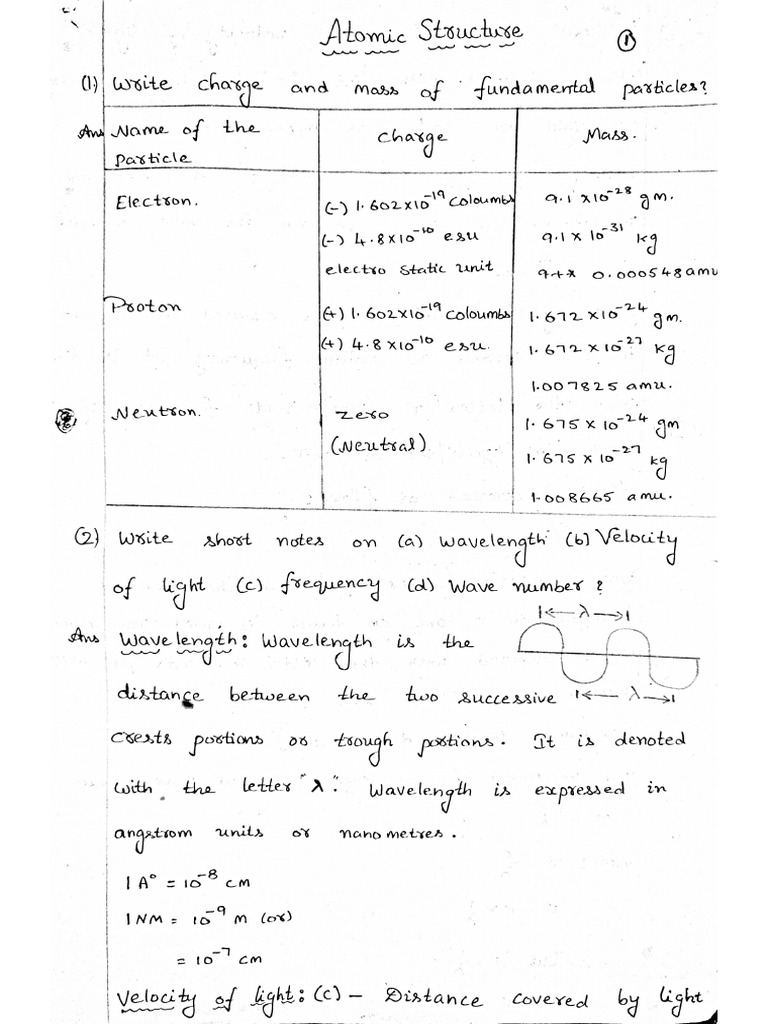 Atomic Structure
①
(1.) Write charge and mass of fundamental particles?
Ans Name of the Particle | Charge | Mass.
Electron. | (-) 1.602x10⁻¹⁹ Coloumbs | 9.1 x10⁻²⁸ gm.
(-) 4.8x10⁻¹⁰ esu | 9.1x 10⁻³¹ kg
electro static unit | 0.000548 amu
Proton | (+) 1.602x10⁻¹⁹ Coloumbs | 1.672 x10⁻²⁴ gm.
(+) 4.8x10⁻¹⁰ esu. | 1.672 x10⁻²⁷ kg
1.007825 amu.
Neutron. | Zero | 1.675 x 10⁻²⁴ gm
(Neutral) | 1.675 x 10⁻²⁷ kg
1.008665 amu.
(2) Write short notes on (a) wavelength (b) Velocity
of light (c) frequency (d) Wave number?
|← λ →|
Ans Wavelength: Wavelength is the
distance between the two successive |← λ →|
crests portions or trough portions. It is denoted
with the letter "λ". Wavelength is expressed in
angstrom units or nano metres.
1 A° = 10⁻⁸ cm
1 NM = 10⁻⁹ m (or)
= 10⁻⁷ cm
Velocity of light: (c) - Distance covered by light